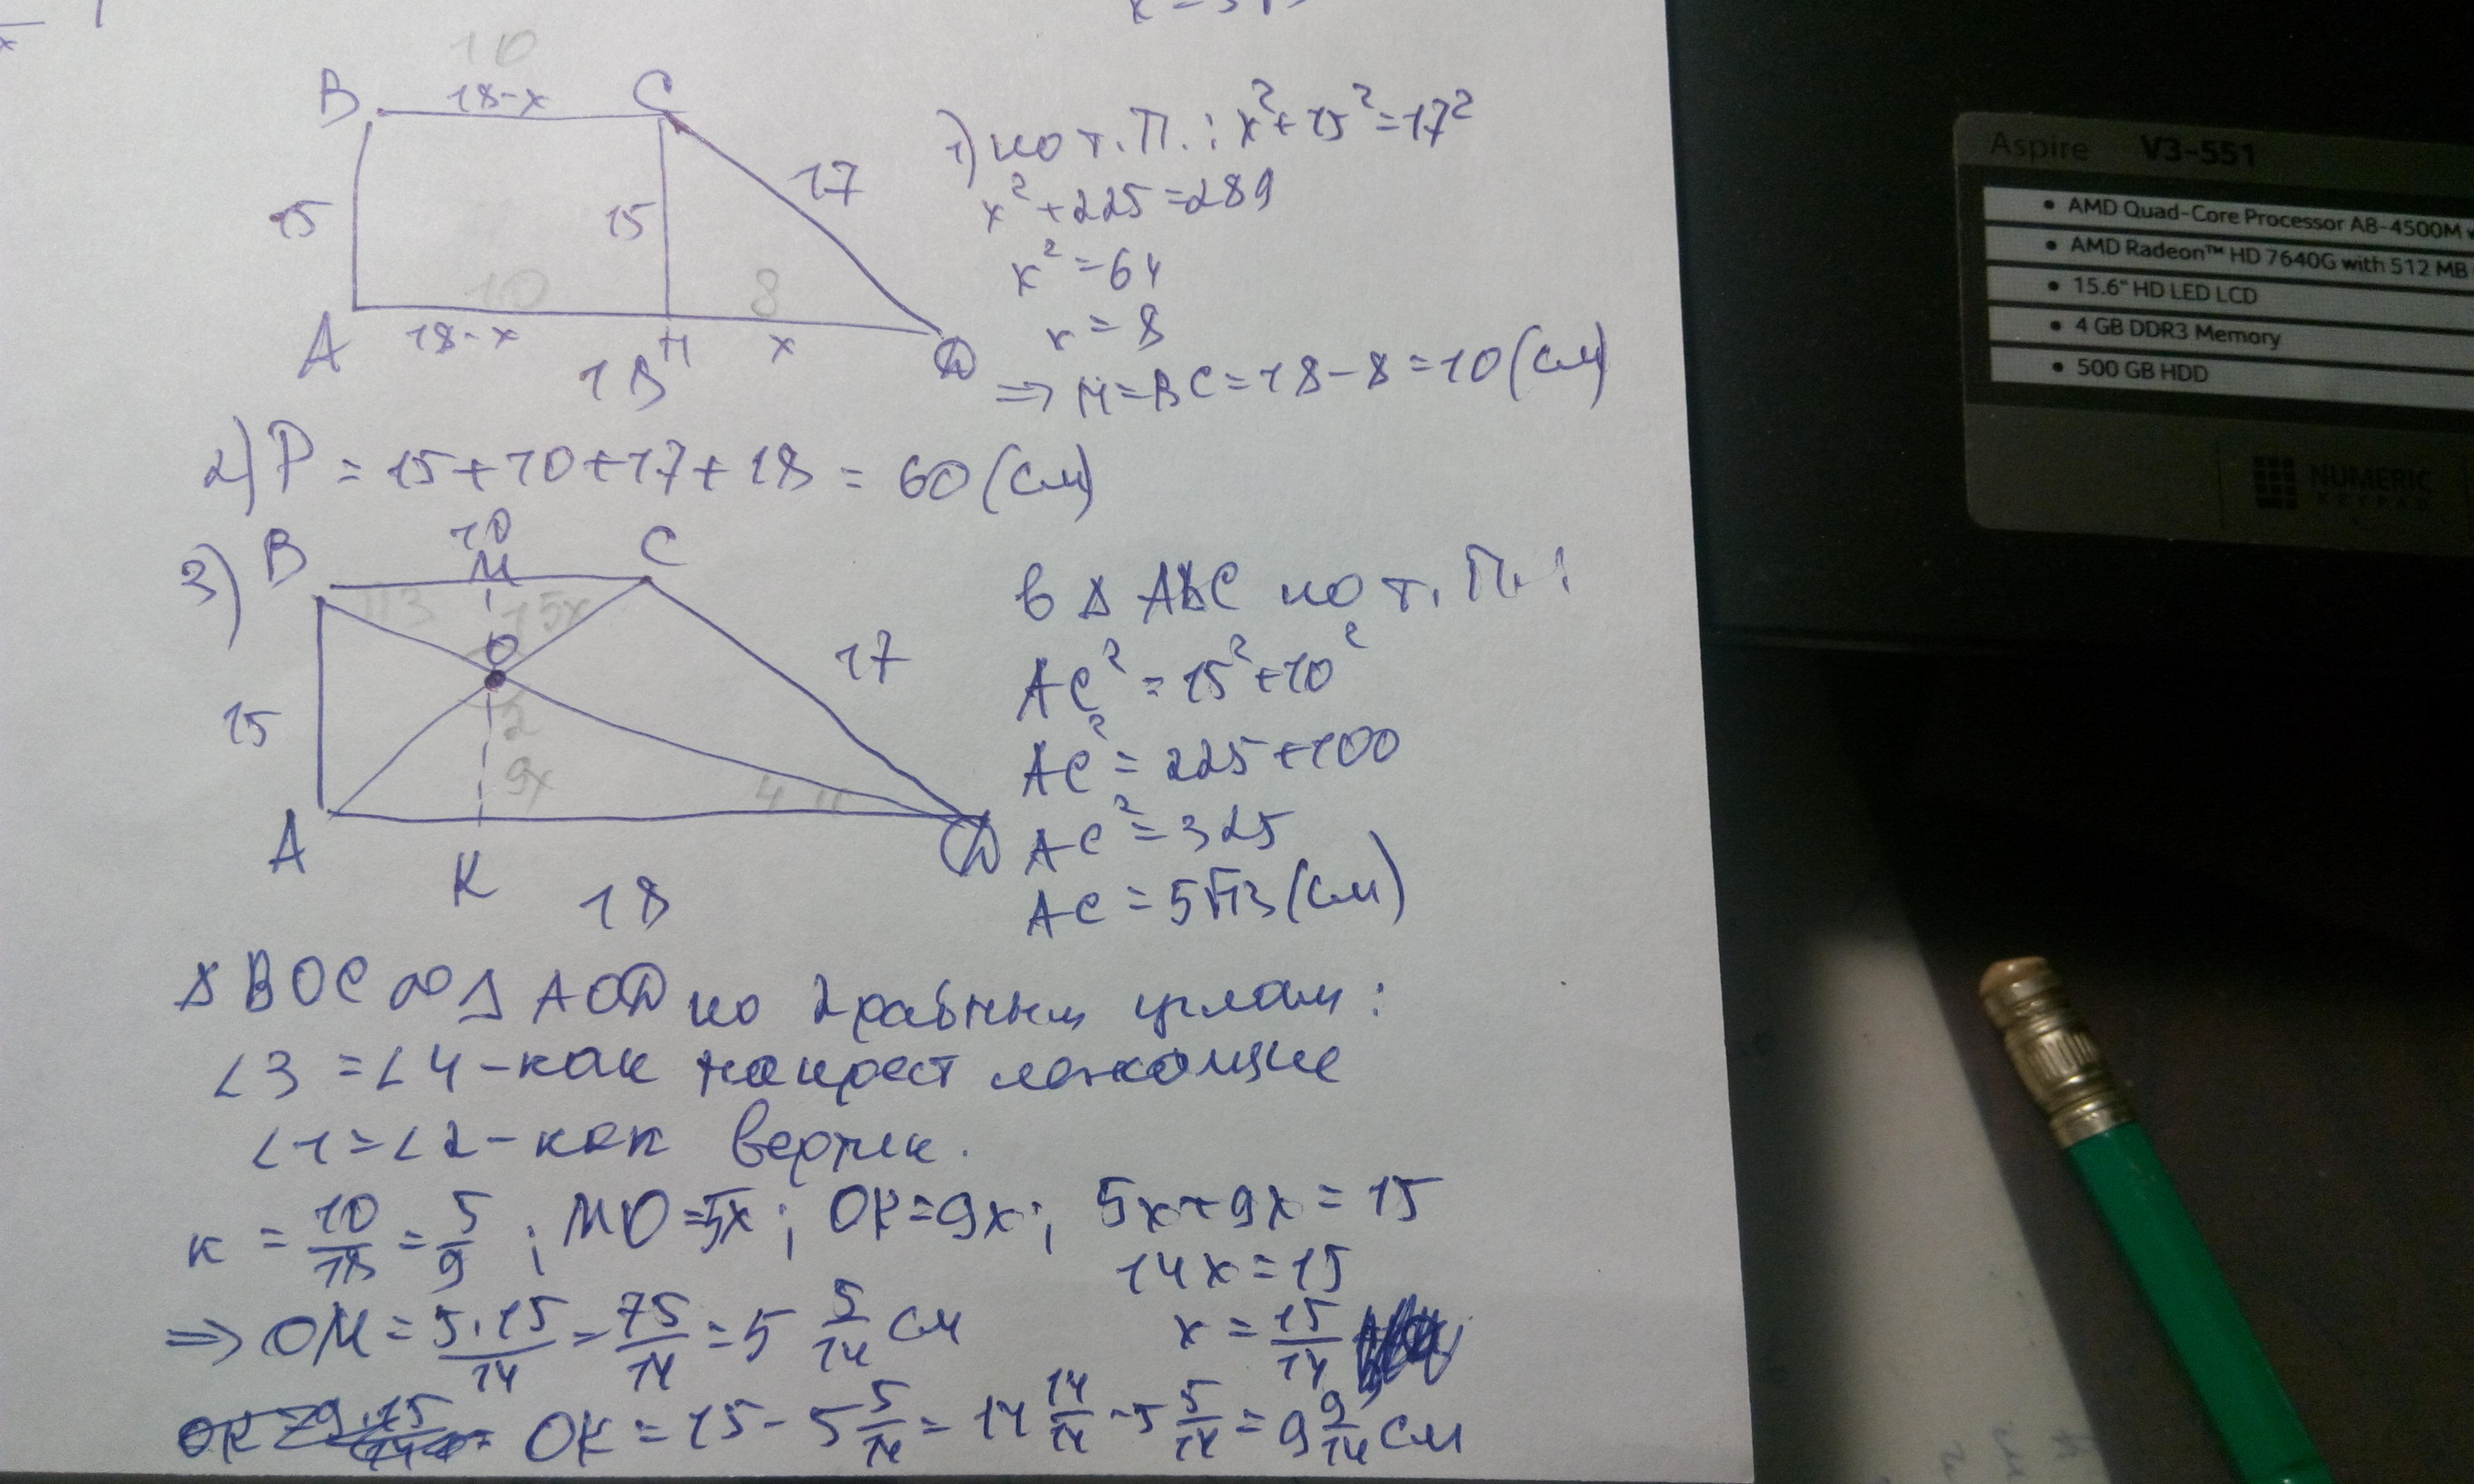 10
B 18-x C
15 15 17
10 8
A 18-x H x D
18
1) по т. П.: x²+15²=17²
x²+225=289
x²=64
x=8
=> M=BC=18-8=10(см)
2) P=15+10+17+18=60(см)
3) B 10 M C
3 1 5x
O
15 2 17
9x 4
A K D
18
в Δ ABC по т. П.:
AC²=15²+10²
AC²=225+100
AC²=325
AC=5√13(см)
Δ BOC ∞ Δ AOD по 2 равным углам:
∠3=∠4-как накрест лежащие
∠1=∠2-как вертик.
к=10/18=5/9; MO=5x; OK=9x; 5x+9x=15
14x=15
=> OM=5·15/14=75/14=5 5/14 см x=15/14
OK=9·15/14= OK=15-5 5/14=14 14/14-5 5/14=9 9/14 см
Aspire V3-551
• AMD Quad-Core Processor A8-4500M
• AMD Radeon™ HD 7640G with 512 MB
• 15.6" HD LED LCD
• 4 GB DDR3 Memory
• 500 GB HDD
NUMERIC
KEYPAD